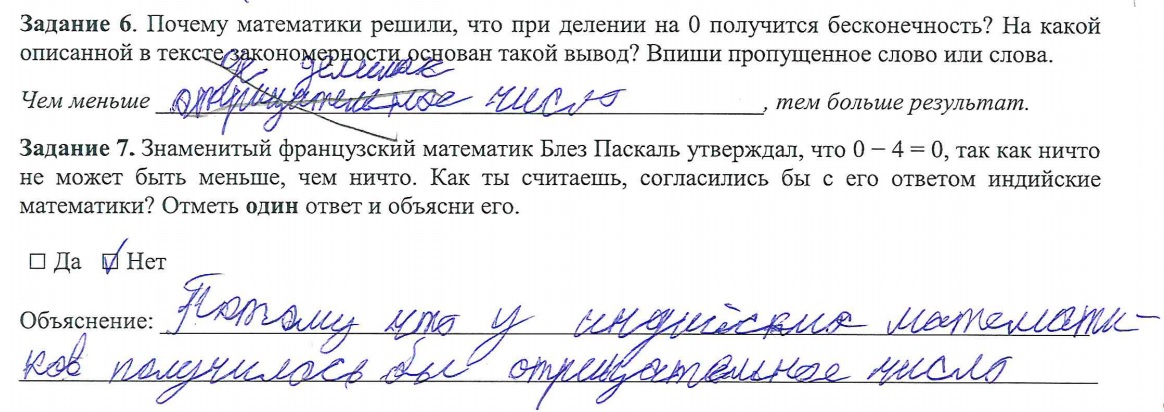 Задание 6. Почему математики решили, что при делении на 0 получится бесконечность? На какой
описанной в тексте закономерности основан такой вывод? Впиши пропущенное слово или слова.
делимое
Чем меньше отрицательное число, тем больше результат.
Задание 7. Знаменитый французский математик Блез Паскаль утверждал, что 0 − 4 = 0, так как ничто
не может быть меньше, чем ничто. Как ты считаешь, согласились бы с его ответом индийские
математики? Отметь один ответ и объясни его.
☐ Да ☑ Нет
Объяснение: Потому что у индийских математи-
ков получилось бы отрицательное число